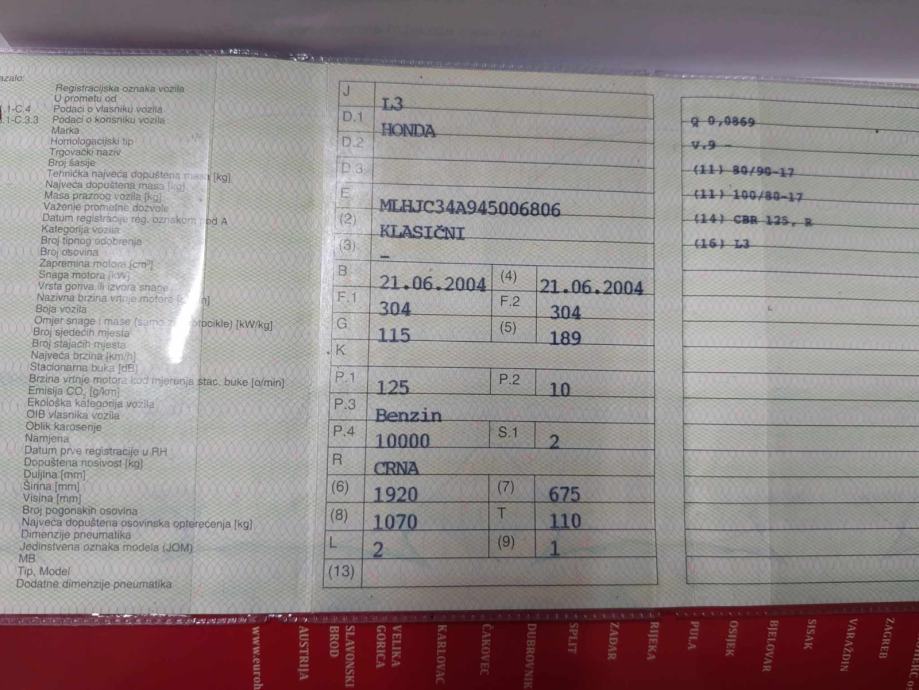 azalo:
Registracijska oznaka vozila
U prometu od
.1-C.4 Podaci o vlasniku vozila
.1-C.3.3 Podaci o korisniku vozila
Marka
Homologacijski tip
Trgovački naziv
Broj šasije
Tehnička najveća dopuštena masa [kg]
Najveća dopuštena masa [kg]
Masa praznog vozila [kg]
Važenje prometne dozvole
Datum registracije reg. oznakom pod A
Kategorija vozila
Broj tipnog odobrenja
Broj osovina
Zapremina motora [cm³]
Snaga motora [kW]
Vrsta goriva ili izvora snage
Nazivna brzina vrtnje motora
Boja vozila
Omjer snage i mase (samo motocikle) [kW/kg]
Broj sjedećih mjesta
Broj stajaćih mjesta
Najveća brzina [km/h]
Stacionarna buka [dB]
Brzina vrtnje motora kod mjerenja stac. buke [o/min]
Emisija CO₂ [g/km]
Ekološka kategorija vozila
OIB vlasnika vozila
Oblik karoserije
Namjena
Datum prve registracije u RH
Dopuštena nosivost [kg]
Duljina [mm]
Širina [mm]
Visina [mm]
Broj pogonskih osovina
Najveća dopuštena osovinska opterećenja [kg]
Dimenzije pneumatika
Jedinstvena oznaka modela (JOM)
MB
Tip, Model
Dodatne dimenzije pneumatika
J L3
D.1 HONDA
D.2
D.3
E MLHJC34A945006806
(2) KLASIČNI
(3) –
B 21.06.2004 (4) 21.06.2004
F.1 304 F.2 304
G 115 (5) 189
K
P.1 125 P.2 10
P.3 Benzin
P.4 10000 S.1 2
R CRNA
(6) 1920 (7) 675
(8) 1070 T 110
L 2 (9) 1
(13)
Q 0,0869
V.9 –
(11) 80/90-17
(11) 100/80-17
(14) CBR 125, R
(16) L3
www.euroh
AUSTRIJA
SLAVONSKI
BROD
VELIKA
GORICA
KARLOVAC
ČAKOVEC
DUBROVNIK
SPLIT
ZADAR
RIJEKA
PULA
OSIJEK
BJELOVAR
SISAK
VARAŽDIN
ZAGREB